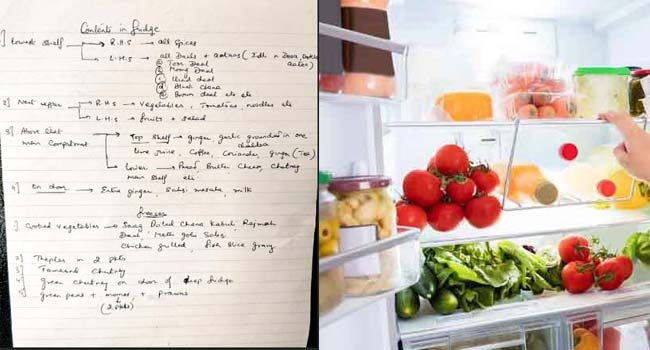 Contents in fridge
1] lowest shelf → R.H.S → all spices
→ L.H.S → all Dals + aatas (Idli n Dosa
aatas)
Toor Daal
Moong Daal
Urad daal
Black Chana
Brown daal etc etc
2] Next upper → R.H.S → vegetables, Tomatoes, noodles etc
→ L.H.S → fruits + salad
3] Above that → Top Shelf → ginger, garlic grounded in one
main Compartment dabba
lime juice, Coffee, Coriander, Ginger (Tea)
→ lower → Bread Butter Cheese, Chutney
main Shelf etc.
4] On door → Entire ginger, Sabzi masala, milk
freezer
1] Cooked vegetables → Saag Boiled Chana Kabuli Rajmah
Daal, Methi
Chicken grilled, Fish Slice gravy
2] Theplas in 2 pkts
3] Tamarind Chutney
4] green Chutney on door of deep fridge
5] green peas + momos + Prawns
(2 pkts)